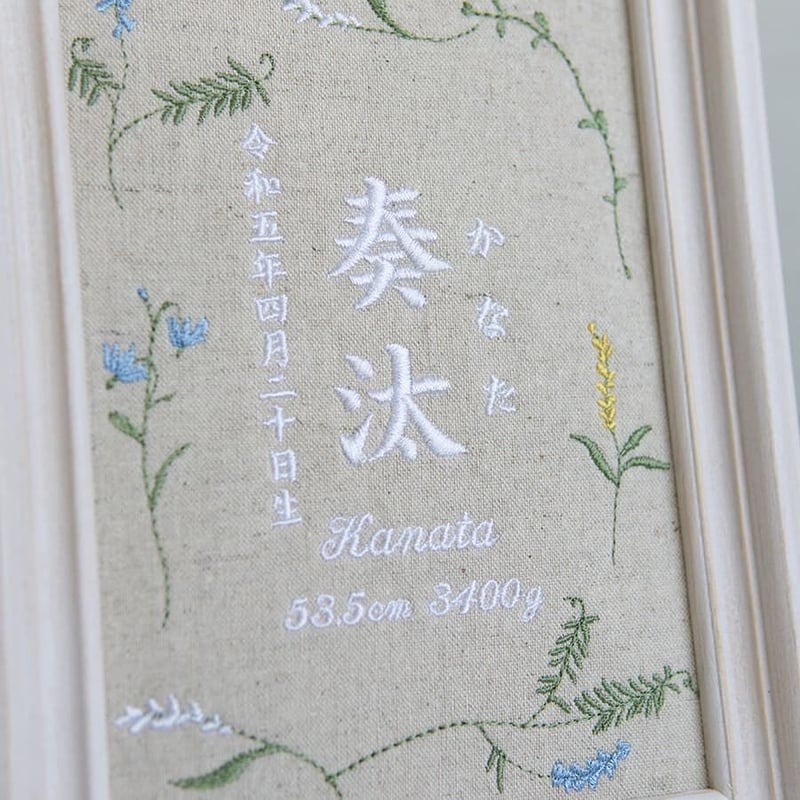 かなた
奏汰
令和五年四月二十日生
Kanata
53.5cm 3400g